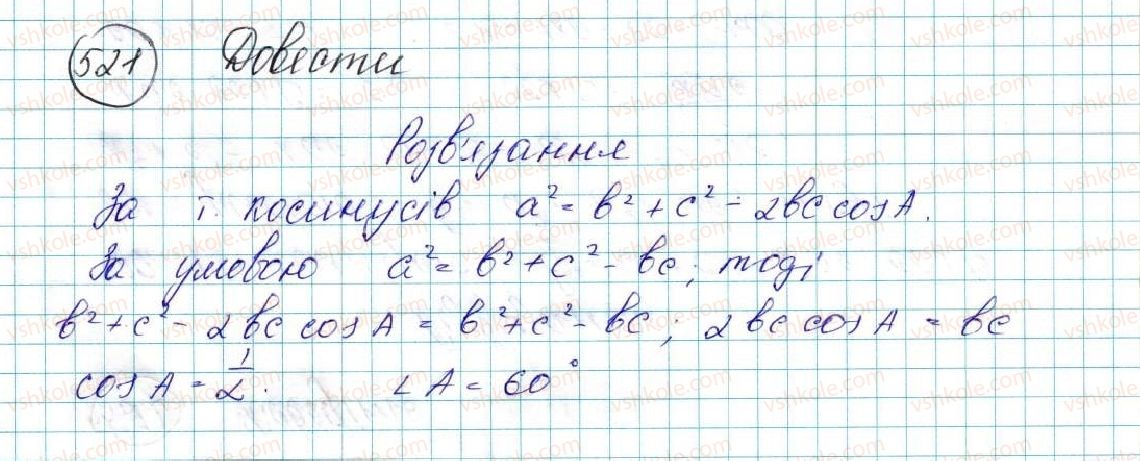 521 Довести
Розв'язання
За т. косинусів a² = b² + c² - 2bc cos A.
За умовою a² = b² + c² - bc; тоді
b² + c² - 2bc cos A = b² + c² - bc; 2bc cos A = bc
cos A = 1/2. ∠A = 60°